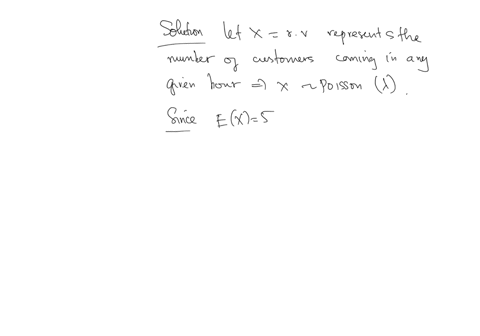 Solution let X = r.v represents the
number of customers coming in any
given hour ⇒ X ~ Poisson (λ).
Since E(X)=5